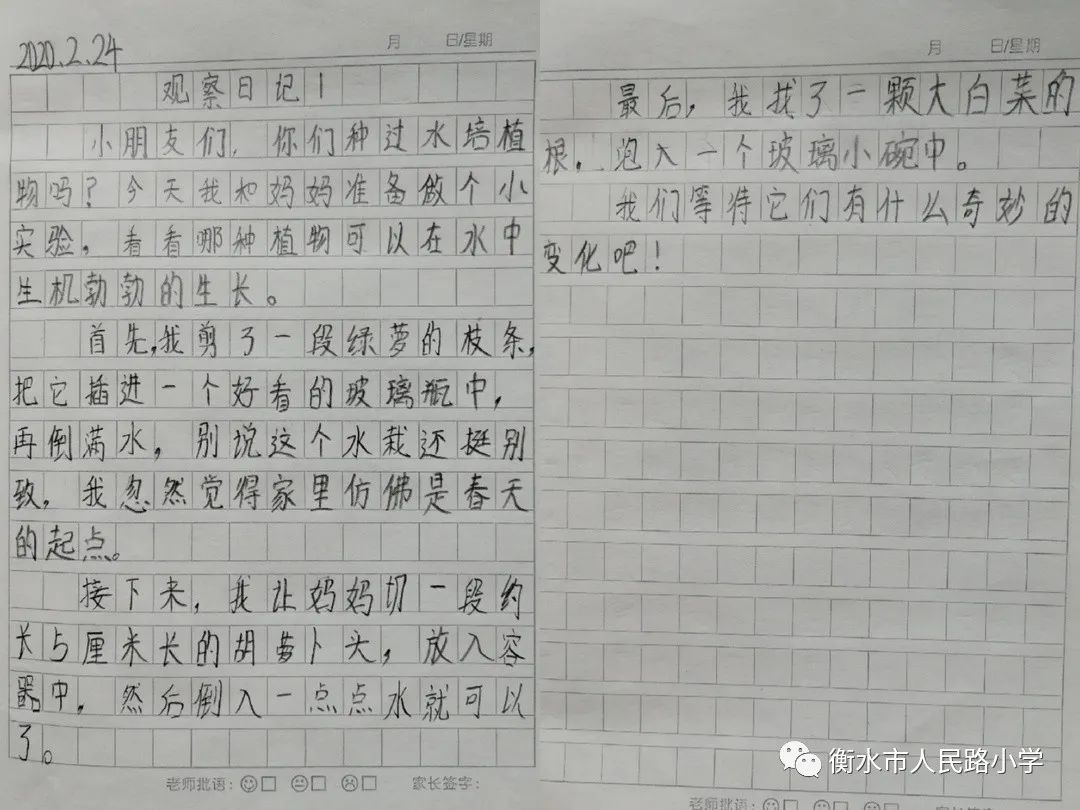 2020.2.24
月 日/星期
观察日记1
小朋友们,你们种过水培植
物吗?今天我和妈妈准备做个小
实验。看看哪种植物可以在水中
生机勃勃的生长。
首先,我剪了一段绿萝的枝条,
把它插进一个好看的玻璃瓶中,
再倒满水,别说这个水栽还挺别
致,我忽然觉得家里仿佛是春天
的起点。
接下来,我让妈妈切一段约
长5厘米长的胡萝卜头,放入容
器中,然后倒入一点点水就可以
了。
老师批语: 家长签字:
月 日/星期
最后,我找了一颗大白菜的
根,泡入一个玻璃小碗中。
我们等待它们有什么奇妙的
变化吧!
老师批语: 家长签字:
衡水市人民路小学